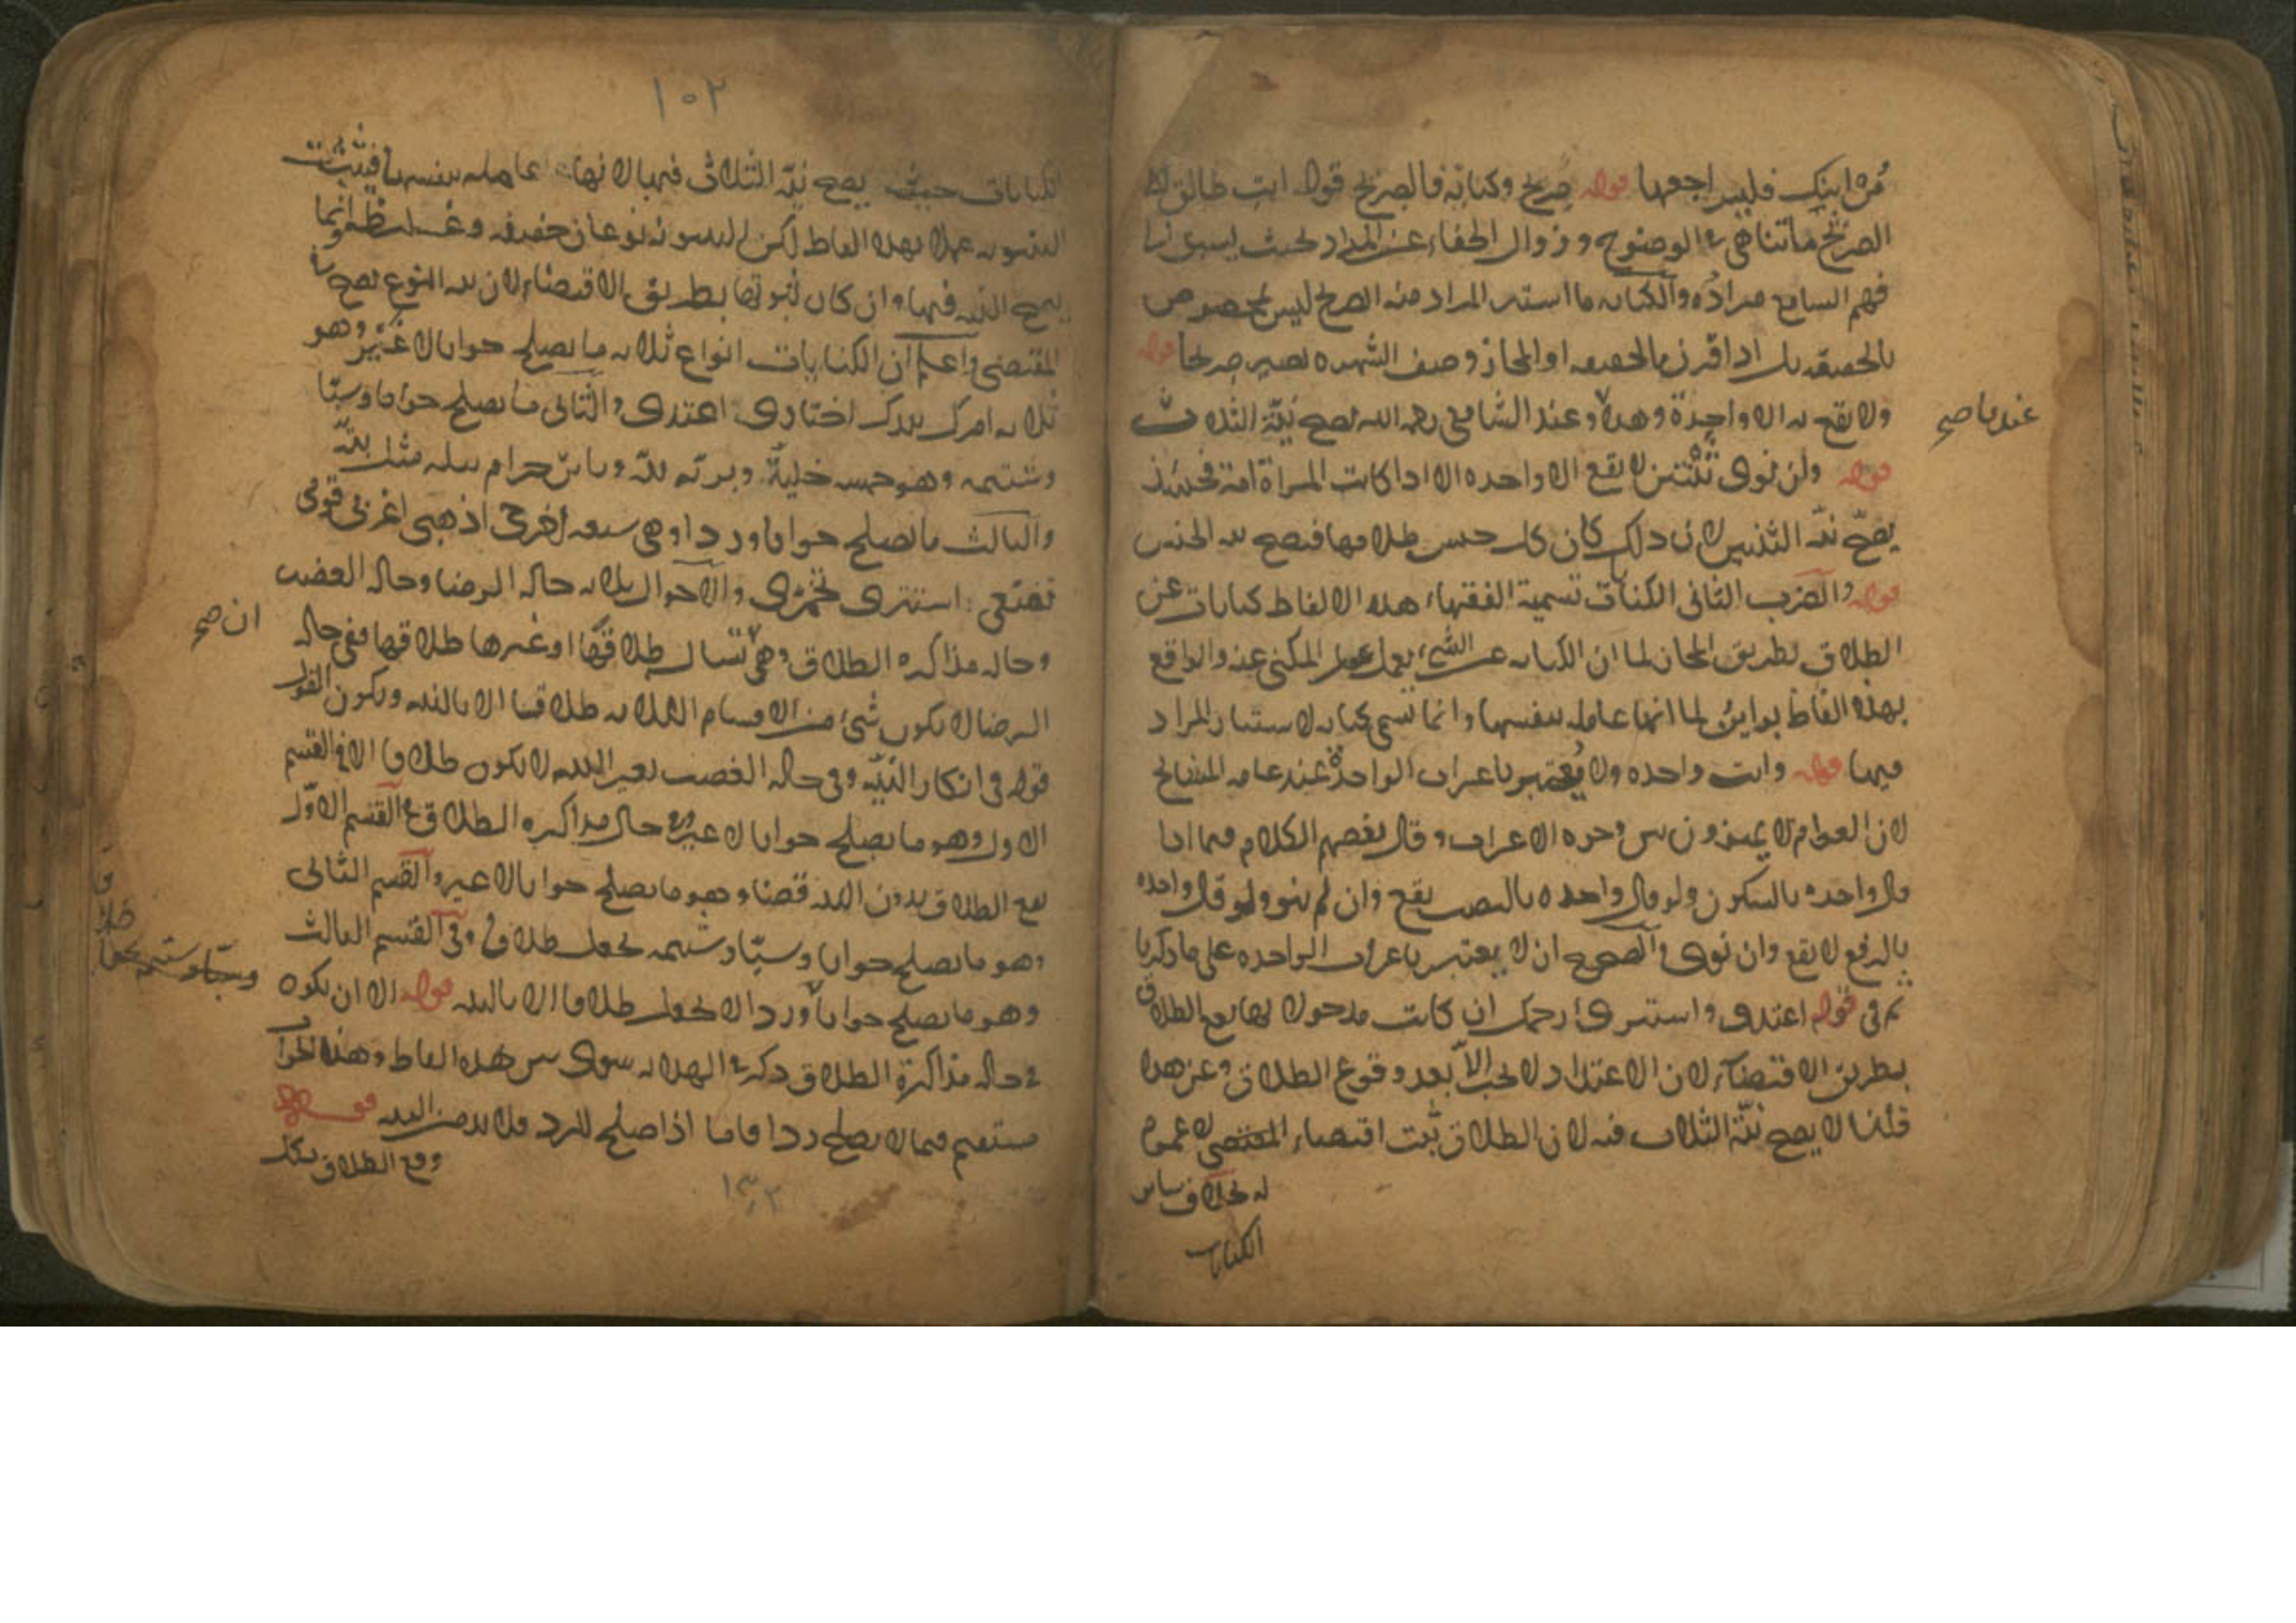 مُره ابنك فليراجعها قوله صريح وكناية فالصريح قوله انت طالق لفظ
الصريح ما تناهى في الوضوح وزوال الخفاء عن المراد بحيث يسبق الى
فهم السامع مراده والكناية ما استتر المراد منه الصريح ليس بمخصوص
بالحقيقة بل اذا اقترن بالحقيقة او المجاز وصف الشهرة يصير صريحا قوله
ولا يقع به الا واحدة وهذا وعند الشافعي رحمه الله تصح نية الثلاث
عندنا صح
قوله وان نوى ثنتين لا يقع الا واحدة الا اذا كانت المراة امة فحينئذ
يصح نية الثنتين لان ذلك كان كل جنس طلاقها فتصح نية الجنس
قوله والضرب الثاني الكنايات تسمية الفقهاء هذه الالفاظ كنايات عن
الطلاق بطريق المجاز لما ان الكناية عن الشيء يعمل عمل المكنى عنه والواقع
بهذه الفاظ بواين لما انها عاملة بنفسها وانما تسمى كناية لاستتار المراد
فيها قوله وانت واحدة ولا يُعتبر باعراب الواحدة عند عامة المشايخ
لان العوام لا يميزون بين وجوه الاعراب وقال بعضهم الكلام فيما اذا
قال واحدة بالسكون ولو قال واحدة بالنصب يقع وان لم ينو ولو قال واحدة
بالرفع لا يقع وان نوى والصحيح ان لا يعتبر باعراب الواحدة على ما ذكرنا
ثم في قوله اعتدى واستبرى رحمك ان كانت مدخولا بها يقع الطلاق
بطريق الاقتضاء لان الاعتداد لا يجب الا بعد وقوع الطلاق وعن هذا
قلنا لا يصح نية الثلاث فيه لان الطلاق ثبت اقتضاء المقتضى لا عموم
له بخلاف سائر
الكنايات
١٠٢
الكنايات حيث يصح نية الثلاث فيها لانها عاملة بنفسها فيثبت
البينونة عملا بهذه الفاظ لكن البينونة نوعان خفيفة وغليظة وانما
يصح النية فيها وان كان ثبوتها بطريق الاقتضاء لان نية النوع تصح في
المقتضى واعلم ان الكنايات انواع ثلاثة ما يصلح جوابا لا غير وهو
ثلاثة امرك بيدك اختارى اعتدى والثاني ما يصلح جوابا وسبا
وشتيمة وهو خمس خلية وبرية بتة وباين حرام بتلة مثل بتة
والثالث ما يصلح جوابا وردا وهي سبعة اخرجى اذهبى اغربى قومى
تقنعى استترى تخمرى والاحوال ثلاثة حالة الرضا وحالة الغضب
وحالة مذاكرة الطلاق وهي تسال طلاقها او غيرها طلاقها ففي حالة
ان صح
الرضا لا يكون شيء من الاقسام الثلاثة طلاقا الا بالنية ويكون القول
قوله في انكار النية وفي حالة الغضب بغير النية لا يكون طلاقا الا في القسم
الاول وهو ما يصلح جوابا لا غير وفي حال مذاكرة الطلاق في القسم الاول
يقع الطلاق بدون النية قضاء وهو ما يصلح جوابا لا غير والقسم الثاني
وهو ما يصلح جوابا وسبا وشتيمة يجعل طلاقا وفي القسم الثالث
وهو ما يصلح جوابا وردا لا يجعل طلاقا الا بالنية قوله الا ان يكون
في حالة مذاكرة الطلاق ذكر في الهداية سوى بين هذه الفاظ وهذا الجواب
مستقيم فيما لا يصلح ردا فاما اذا صلح للرد فلا بد من النية قوله
وقع الطلاق بكل
١٣٢